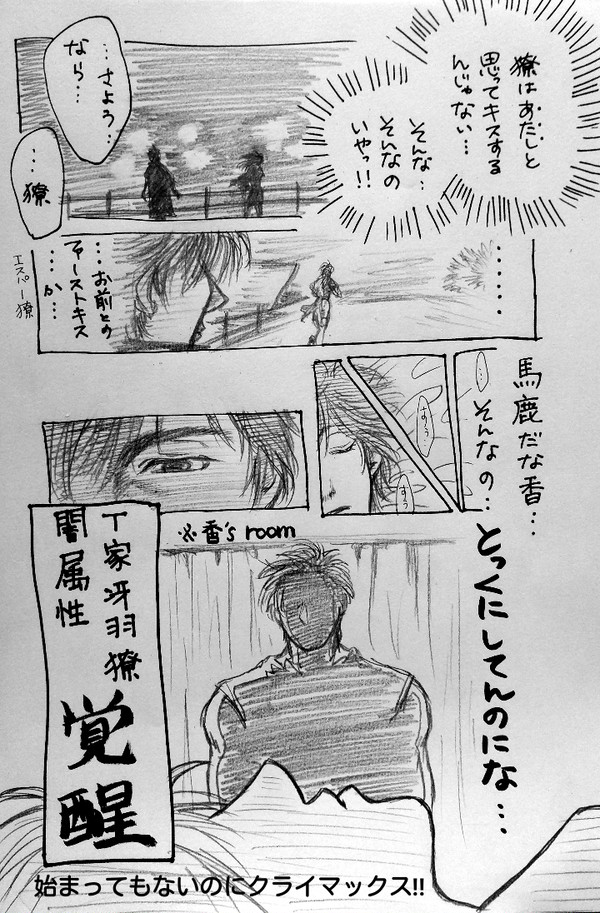 獠はあたしと
思ってキスする
んじゃない…
そんな…
そんなの
いやっ!!
…さよう
なら…
…獠
……
…お前との
ファーストキス
…か…
エスパー獠
馬鹿だな香…
…そんなの…
すぅ
すぅ
とっくにしてんのにな…
※香's room
T家冴羽獠
闇属性
覚醒
始まってもないのにクライマックス!!